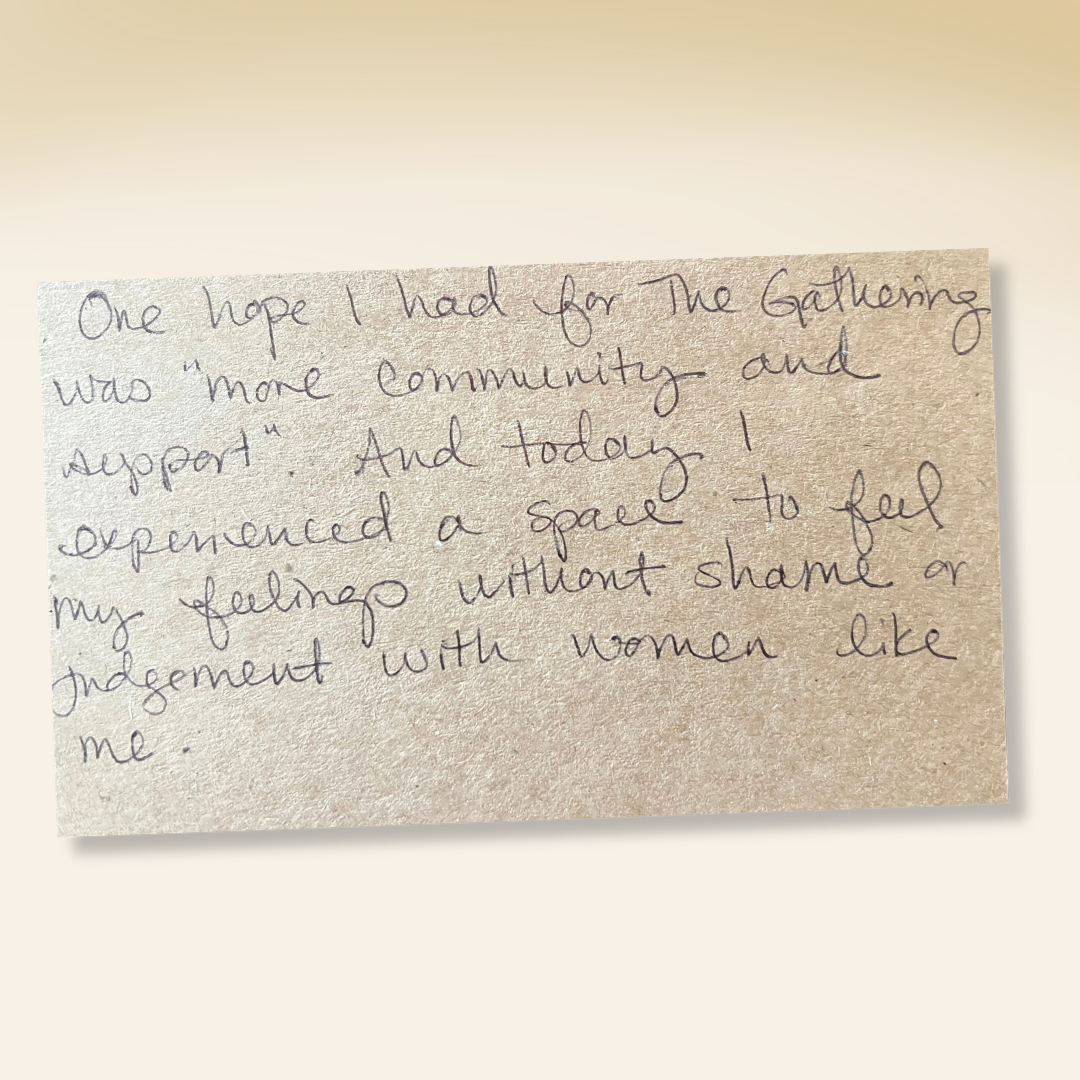 One hope I had for The Gathering
was "more community and
support". And today I
experienced a space to feel
my feelings without shame or
judgement with women like
me.